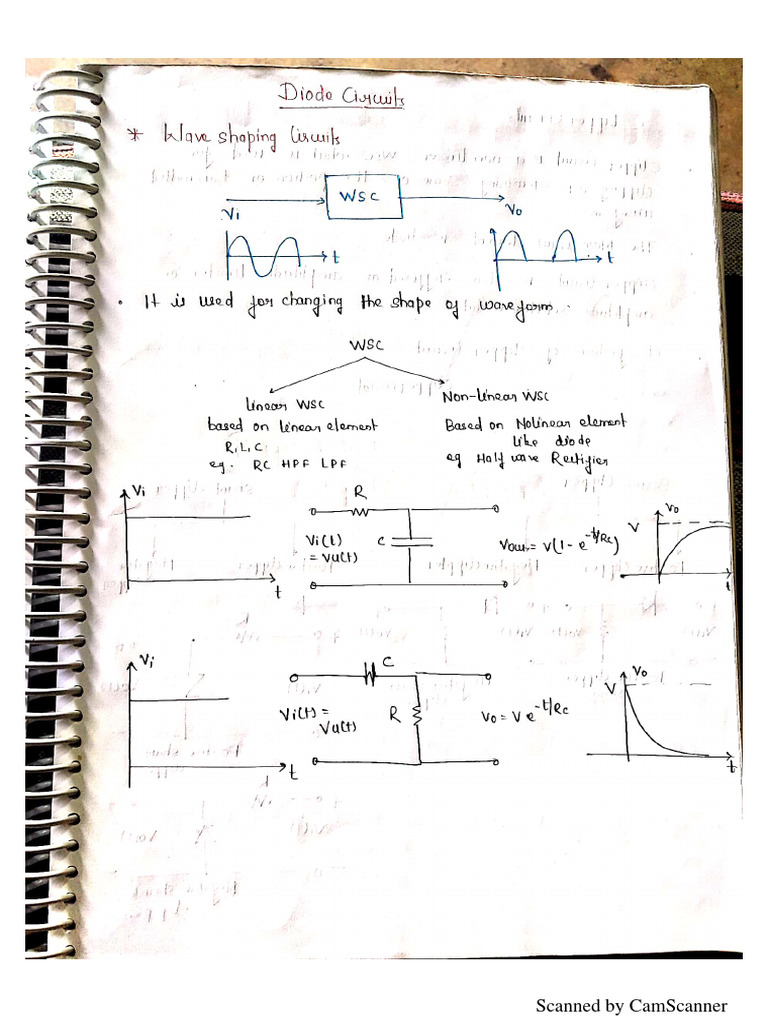 Diode Circuits
* Wave shaping Circuits
WSC
Vi
Vo
t
t
• It is used for changing the shape of waveform.
WSC
Linear WSC
based on linear element
R, L, C
eg. RC HPF LPF
Non-linear WSC
Based on Nolinear element
like diode
eg Half wave Rectifier
Vi
t
R
C
Vi(t)
= Vu(t)
Vout = V(1 - e^-t/RC)
Vo
V
t
Vi
t
C
R
Vi(t) =
Vu(t)
Vo = V e^-t/RC
Vo
V
t
Scanned by CamScanner